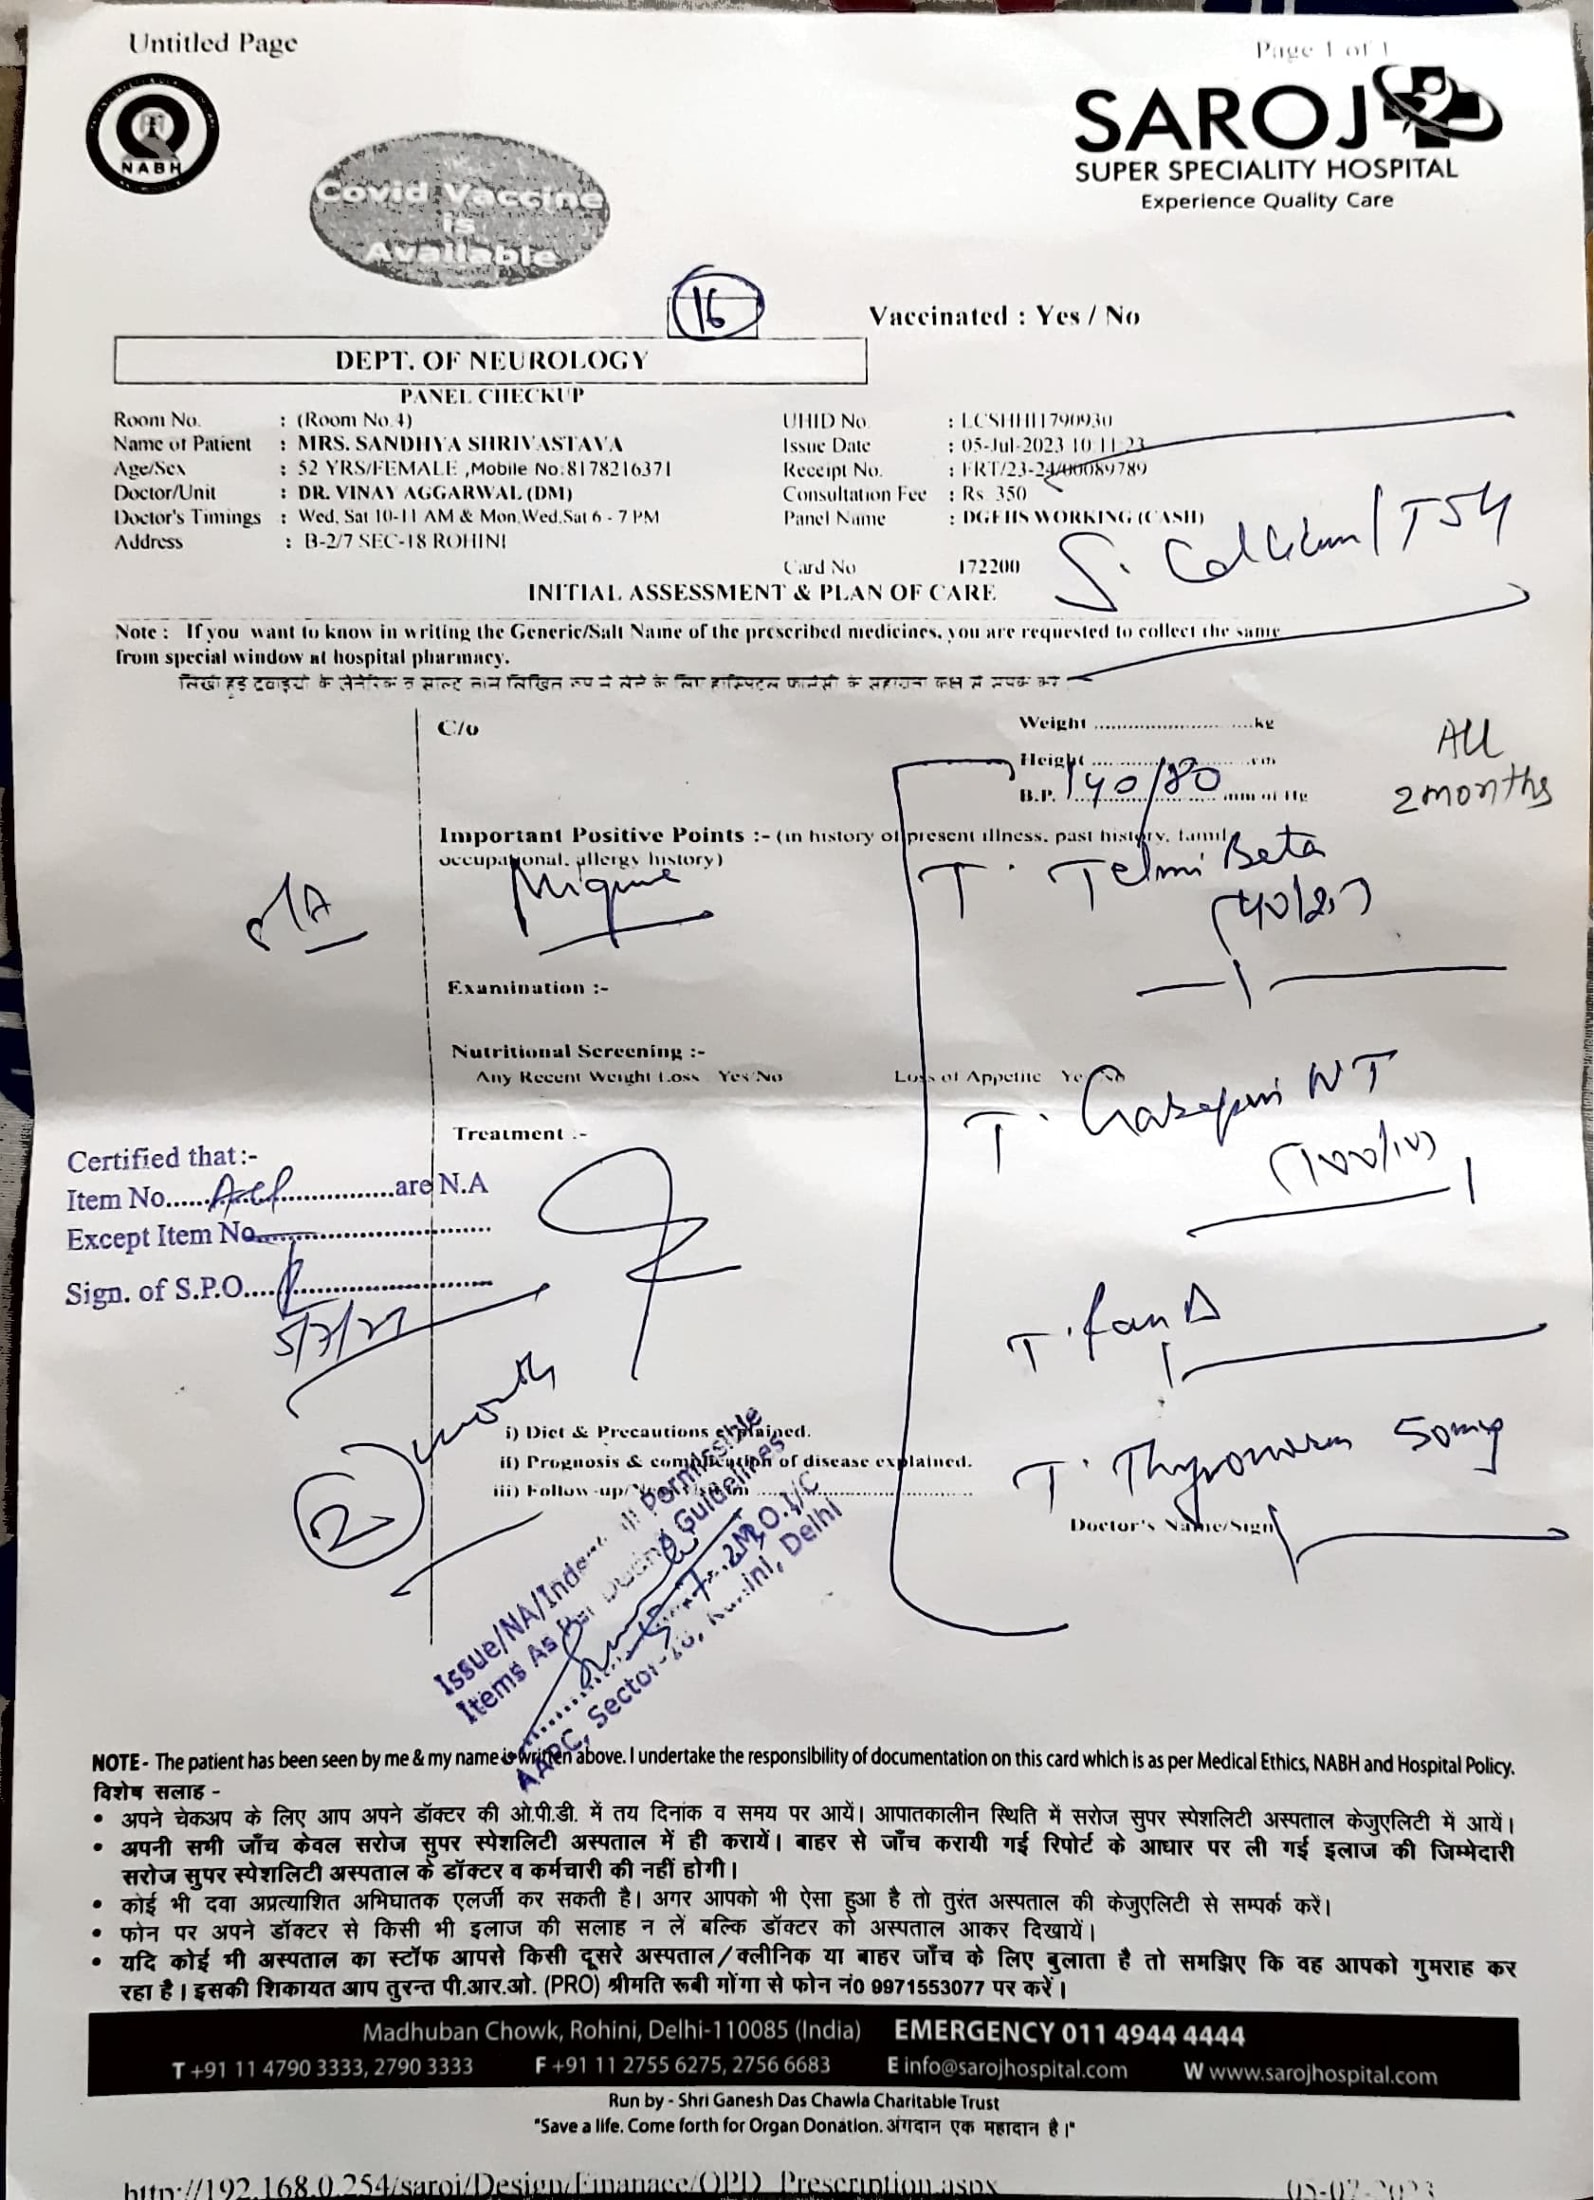 Untitled Page
Page 1 of 1
NABH
SAROJ
SUPER SPECIALITY HOSPITAL
Experience Quality Care
Covid Vaccine
is
Available
16
Vaccinated : Yes / No
DEPT. OF NEUROLOGY
PANEL CHECKUP
Room No. : (Room No.4) UHID No. : LCSHHI1790930
Name of Patient : MRS. SANDHYA SHRIVASTAVA Issue Date : 05-Jul-2023 10:11:23
Age/Sex : 52 YRS/FEMALE ,Mobile No:8178216371 Receipt No. : FRT/23-24/00089789
Doctor/Unit : DR. VINAY AGGARWAL (DM) Consultation Fee : Rs 350
Doctor's Timings : Wed, Sat 10-11 AM & Mon,Wed,Sat 6 - 7 PM Panel Name : DGEHS WORKING (CASH)
Address : B-2/7 SEC-18 ROHINI
S. Calcium / TSH
Card No 172200
INITIAL ASSESSMENT & PLAN OF CARE
Note : If you want to know in writing the Generic/Salt Name of the prescribed medicines, you are requested to collect the same
from special window at hospital pharmacy.
C/o
Weight ..........kg
Height ..........cm
B.P. 140/80 mm of Hg
All
2 months
Important Positive Points :- (in history of present illness, past history, family
occupational, allergy history)
T. Telmi Beta
(40/25)
Examination :-
Nutritional Screening :-
Any Recent Weight Loss Yes/No Loss of Appetite Yes/No
T. NT
(100/10)
Treatment :-
Certified that:-
Item No...... All ..............are N.A
Except Item No.................
Sign. of S.P.O..................
5/7/23
T.
2 month
i) Diet & Precautions explained.
ii) Prognosis & complication of disease explained.
iii) Follow-up/
T. Thyronorm 50mg
Doctor's Name/Sign
Issue/NA/Indent All Permissible
Items As Per Guidelines
M.O.I/C
AARC, Sector-18, Rohini, Delhi
NOTE - The patient has been seen by me & my name is written above. I undertake the responsibility of documentation on this card which is as per Medical Ethics, NABH and Hospital Policy.
विशेष सलाह -
• अपने चेकअप के लिए आप अपने डॉक्टर की ओ.पी.डी. में तय दिनांक व समय पर आयें। आपातकालीन स्थिति में सरोज सुपर स्पेशलिटी अस्पताल केजुएलिटी में आयें।
• अपनी सभी जाँच केवल सरोज सुपर स्पेशलिटी अस्पताल में ही करायें। बाहर से जाँच करायी गई रिपोर्ट के आधार पर ली गई इलाज की जिम्मेदारी
सरोज सुपर स्पेशलिटी अस्पताल के डॉक्टर व कर्मचारी की नहीं होगी।
• कोई भी दवा अप्रत्याशित अभिघातक एलर्जी कर सकती है। अगर आपको भी ऐसा हुआ है तो तुरंत अस्पताल की केजुएलिटी से सम्पर्क करें।
• फोन पर अपने डॉक्टर से किसी भी इलाज की सलाह न लें बल्कि डॉक्टर को अस्पताल आकर दिखायें।
• यदि कोई भी अस्पताल का स्टॉफ आपसे किसी दूसरे अस्पताल/क्लीनिक या बाहर जाँच के लिए बुलाता है तो समझिए कि वह आपको गुमराह कर
रहा है। इसकी शिकायत आप तुरन्त पी.आर.ओ. (PRO) श्रीमति रूबी मोंगा से फोन नं0 9971553077 पर करें।
Madhuban Chowk, Rohini, Delhi-110085 (India) EMERGENCY 011 4944 4444
T +91 11 4790 3333, 2790 3333 F +91 11 2755 6275, 2756 6683 E info@sarojhospital.com W www.sarojhospital.com
Run by - Shri Ganesh Das Chawla Charitable Trust
"Save a life. Come forth for Organ Donation. अंगदान एक महादान है।"
http://192.168.0.254/saroj/Design/Finanace/OPD_Prescription.aspx 05-07-2023